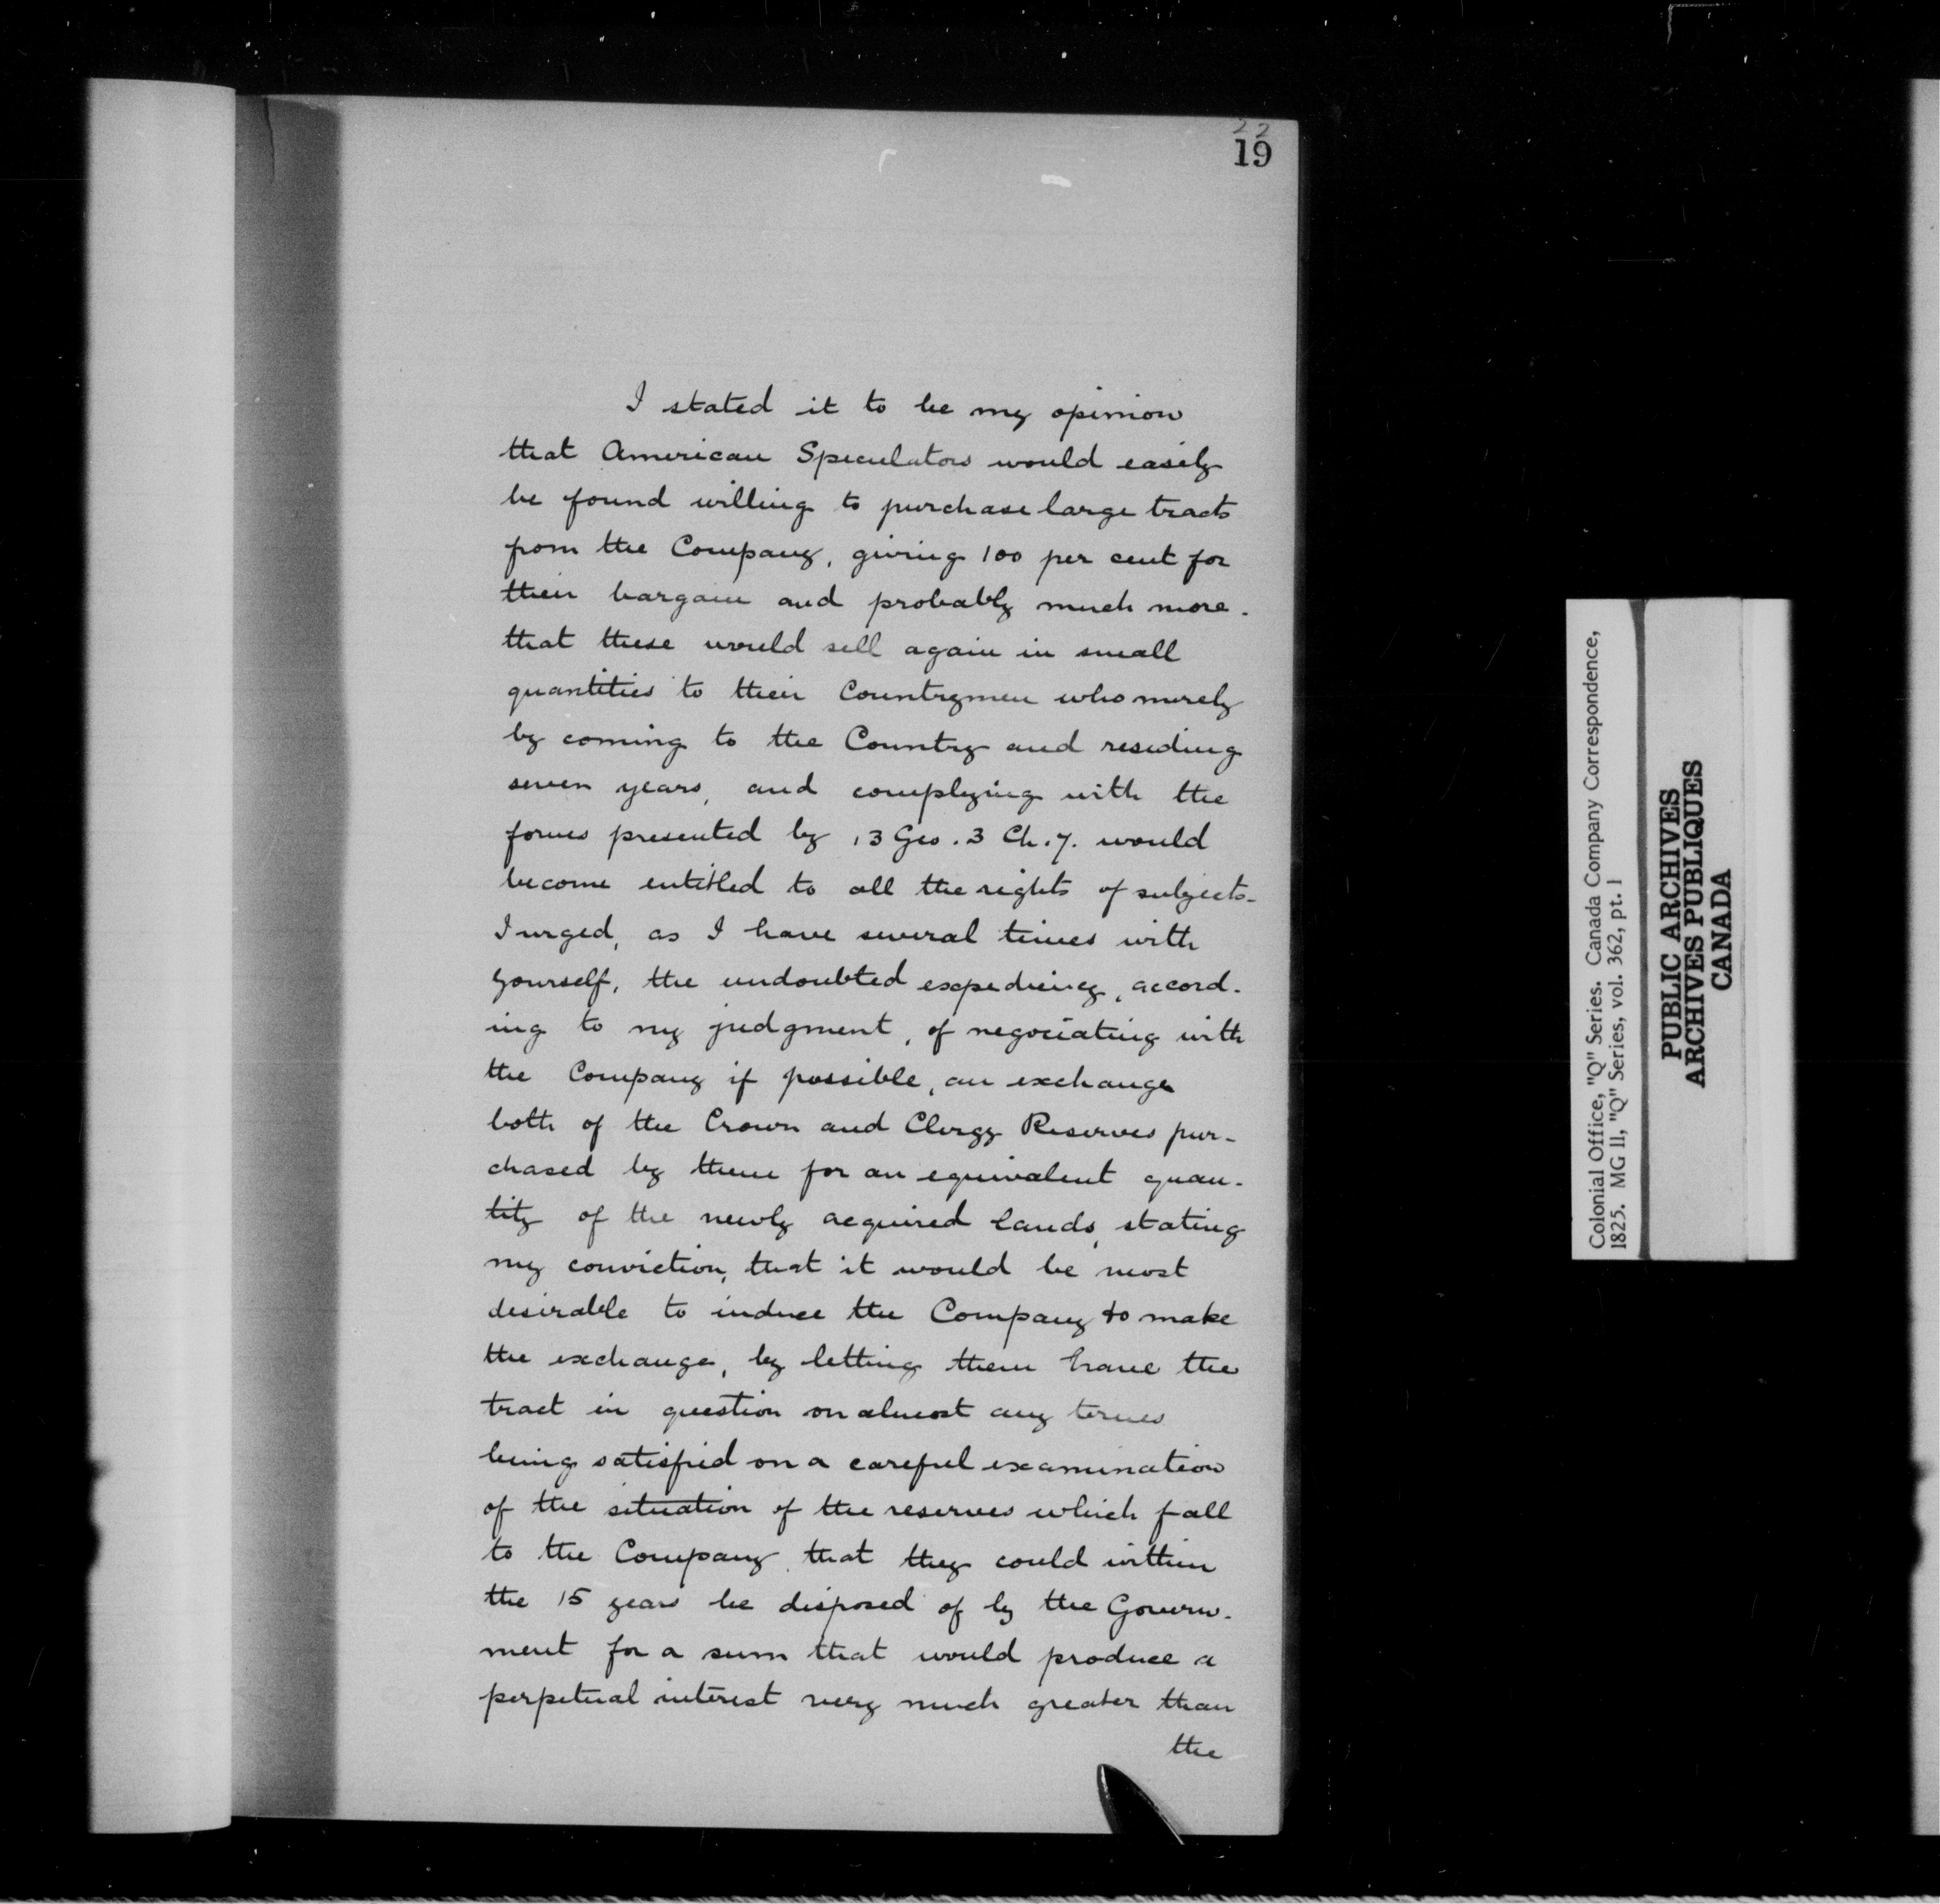 22
19
I stated it to be my opinion
that American Speculators would easily
be found willing to purchase large tracts
from the Company, giving 100 per cent for
their bargain and probably much more.
that these would sell again in small
quantities to their Countrymen who merely
by coming to the Country and residing
seven years, and complying with the
forms presented by 13 Geo. 3 Ch. 7. would
become entitled to all the rights of subjects.
I urged, as I have several times with
yourself, the undoubted expediency, accord-
ing to my judgment, of negociating with
the Company if possible, an exchange
both of the Crown and Clergy Reserves pur-
chased by them for an equivalent quan-
tity of the newly acquired lands, stating
my conviction, that it would be most
desirable to induce the Company to make
the exchange, by letting them have the
tract in question on almost any terms
being satisfied on a careful examination
of the situation of the reserves which fall
to the Company that they could within
the 15 years be disposed of by the Govern-
ment for a sum that would produce a
perpetual interest very much greater than
the
Colonial Office, "Q" Series. Canada Company Correspondence,
1825. MG 11, "Q" Series, vol. 362, pt. 1
PUBLIC ARCHIVES
ARCHIVES PUBLIQUES
CANADA